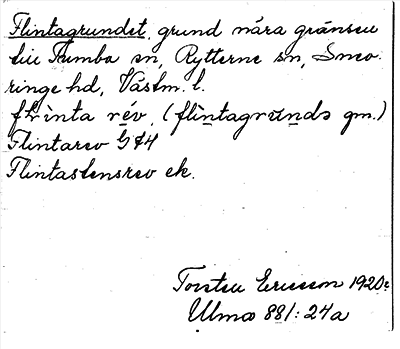 Flintagrundet, grund nära gränsen
till Tumba sn, Rytterne sn, Snev-
ringe hd, Västm. l.
flinta rév, (flintagrunds gm.)
Flintarev G 74
Flintastensrev ek.
Torsten Ericsson 1920:
Ulma 881:24a